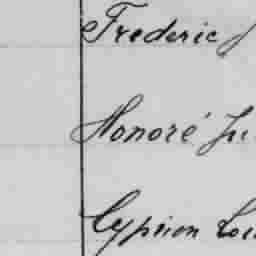 Frederic J
Honoré Ju
Cyprien Lou